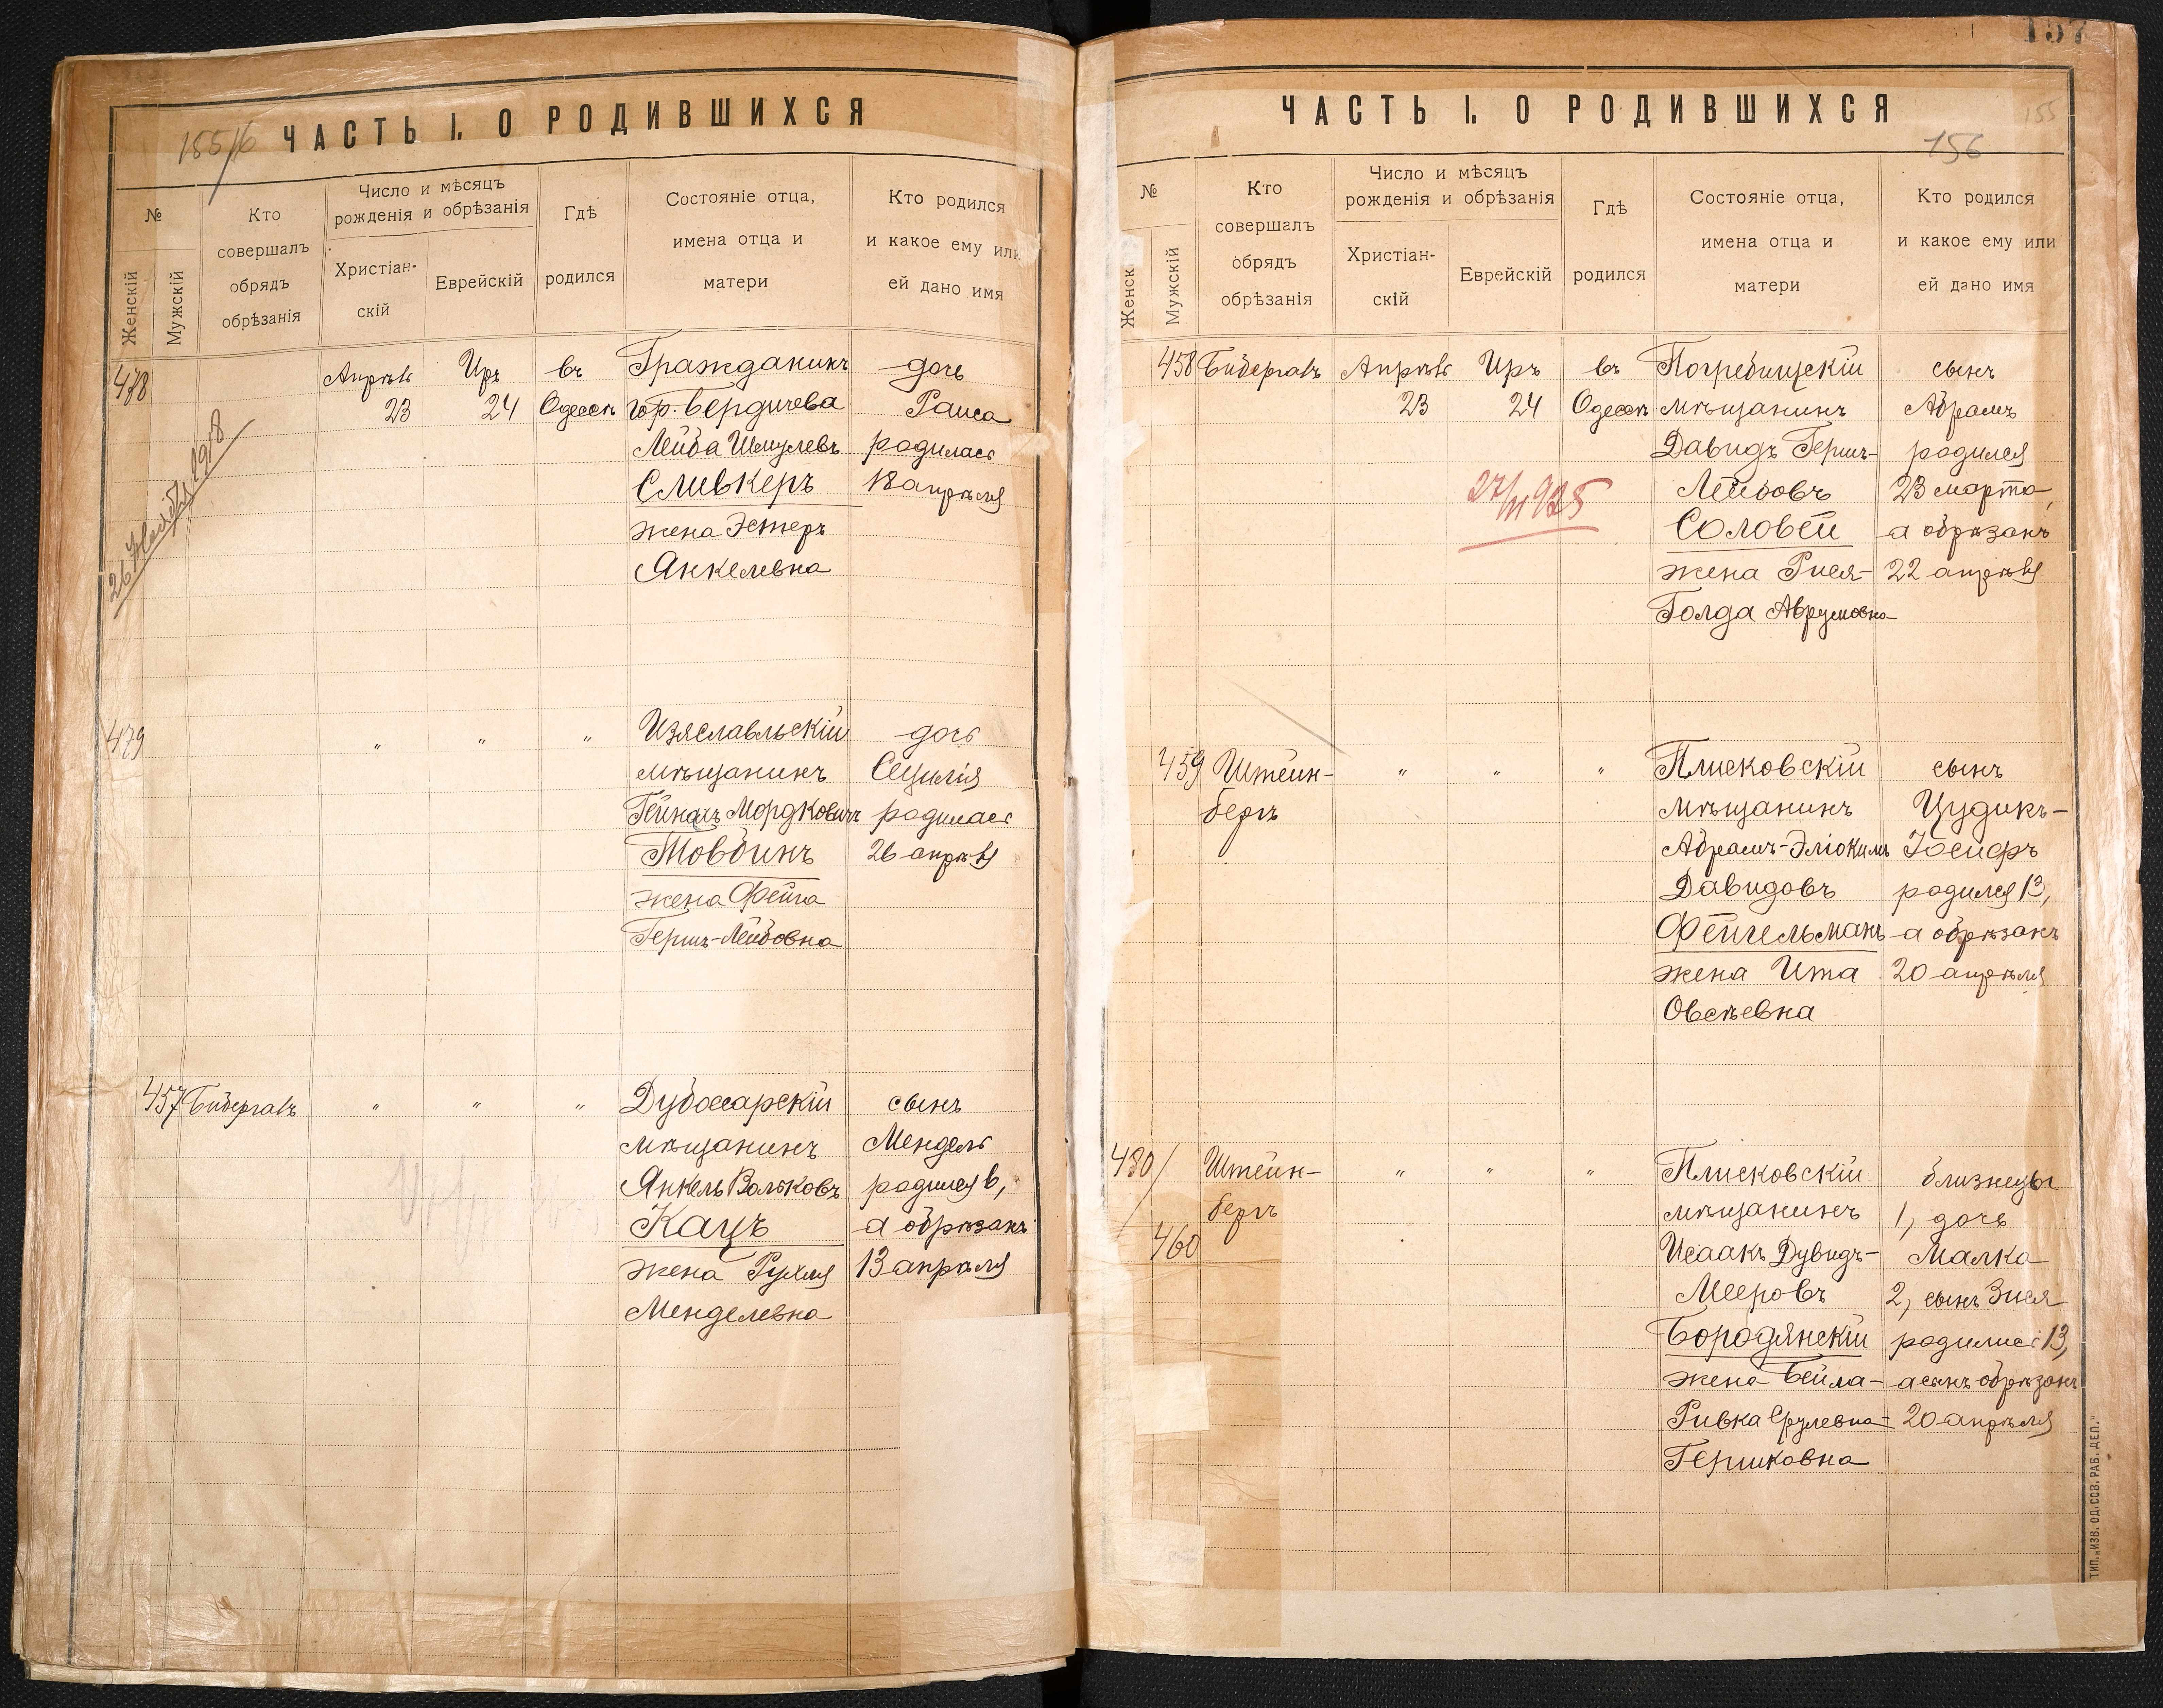 155/б
ЧАСТЬ I. О РОДИВШИХСЯ
№
Женскій
Мужскій
Кто
совершалъ
обрядъ
обрѣзанія
Число и мѣсяцъ
рожденія и обрѣзанія
Христіан-
скій
Еврейскій
Гдѣ
родился
Состояніе отца,
имена отца и
матери
Кто родился
и какое ему или
ей дано имя
478
26 Ноября 1918
Апрѣль
23
Иръ
24
въ
Одессѣ
Гражданинъ
гор. Бердичева
Лейба Шмулевъ
Сливкеръ
жена Эстеръ
Янкелевна
дочь
Раиса
родилась
18 апрѣля
479
" " "
Изяславльскій
мѣщанинъ
Гейнахъ Мордковичъ
Товбинъ
жена Фейга
Гершъ-Лейбовна
дочь
Сецилія
родилась
26 апрѣля
457
Бибергалъ
" " "
Дубоссарскій
мѣщанинъ
Янкель Вольковъ
Кацъ
жена Рухля
Менделевна
сынъ
Мендель
родился 6,
а обрѣзанъ
13 апрѣля
157
155
156
ЧАСТЬ I. О РОДИВШИХСЯ
№
Женск
Мужскій
Кто
совершалъ
обрядъ
обрѣзанія
Число и мѣсяцъ
рожденія и обрѣзанія
Христіан-
скій
Еврейскій
Гдѣ
родился
Состояніе отца,
имена отца и
матери
Кто родился
и какое ему или
ей дано имя
458
Бибергалъ
Апрѣль
23
Иръ
24
27/III 925
въ
Одессѣ
Погребищскій
мѣщанинъ
Давидъ Гершъ-
Лейбовъ
Соловей
жена Рися-
Голда Аврумовна
сынъ
Абрамъ
родился
23 марта,
а обрѣзанъ
22 апрѣля
459
Штейн-
бергъ
" " "
Плисковскій
мѣщанинъ
Абрамъ-Эліокимъ
Давидовъ
Фейгельманъ
жена Ита
Овсѣевна
сынъ
Цудикъ-
Іосифъ
родился 13,
а обрѣзанъ
20 апрѣля
480/
460
Штейн-
бергъ
" " "
Плисковскій
мѣщанинъ
Исаакъ Дувидъ-
Мееровъ
Бородянскій
жена Бейла-
Ривка Срулевна-
Гершковна
близнецы
1, дочь
Малка
2, сынъ Зися
родились 13,
а сынъ обрѣзанъ
20 апрѣля
ТИП. „ИЗВ. ОД. ССВ. РАБ. ДЕП."